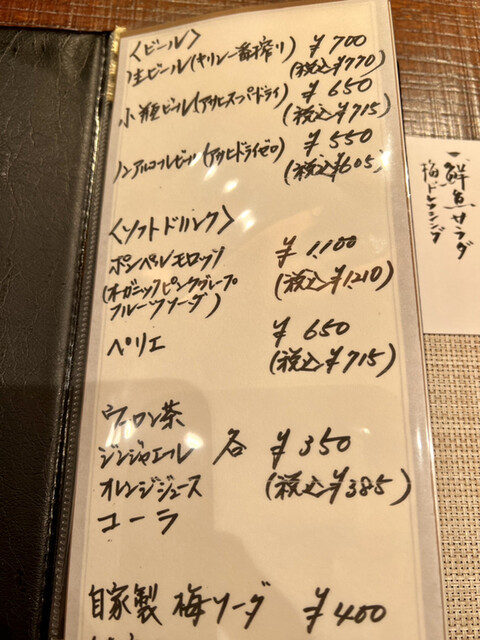 〈ビール〉
生ビール(キリン一番搾り) ¥700
(税込¥770)
小瓶ビール(アサヒスーパードライ) ¥650
(税込¥715)
ノンアルコールビール(アサヒドライゼロ) ¥550
(税込¥605)
〈ソフトドリンク〉
ポンペルモロッソ ¥1,100
(オーガニックピンクグレープ (税込¥1,210)
フルーツソーダ)
ペリエ ¥650
(税込¥715)
ウーロン茶
ジンジャエール 各 ¥350
オレンジジュース (税込¥385)
コーラ
自家製 梅ソーダ ¥400
一鮮魚サラダ
梅ドレッシング